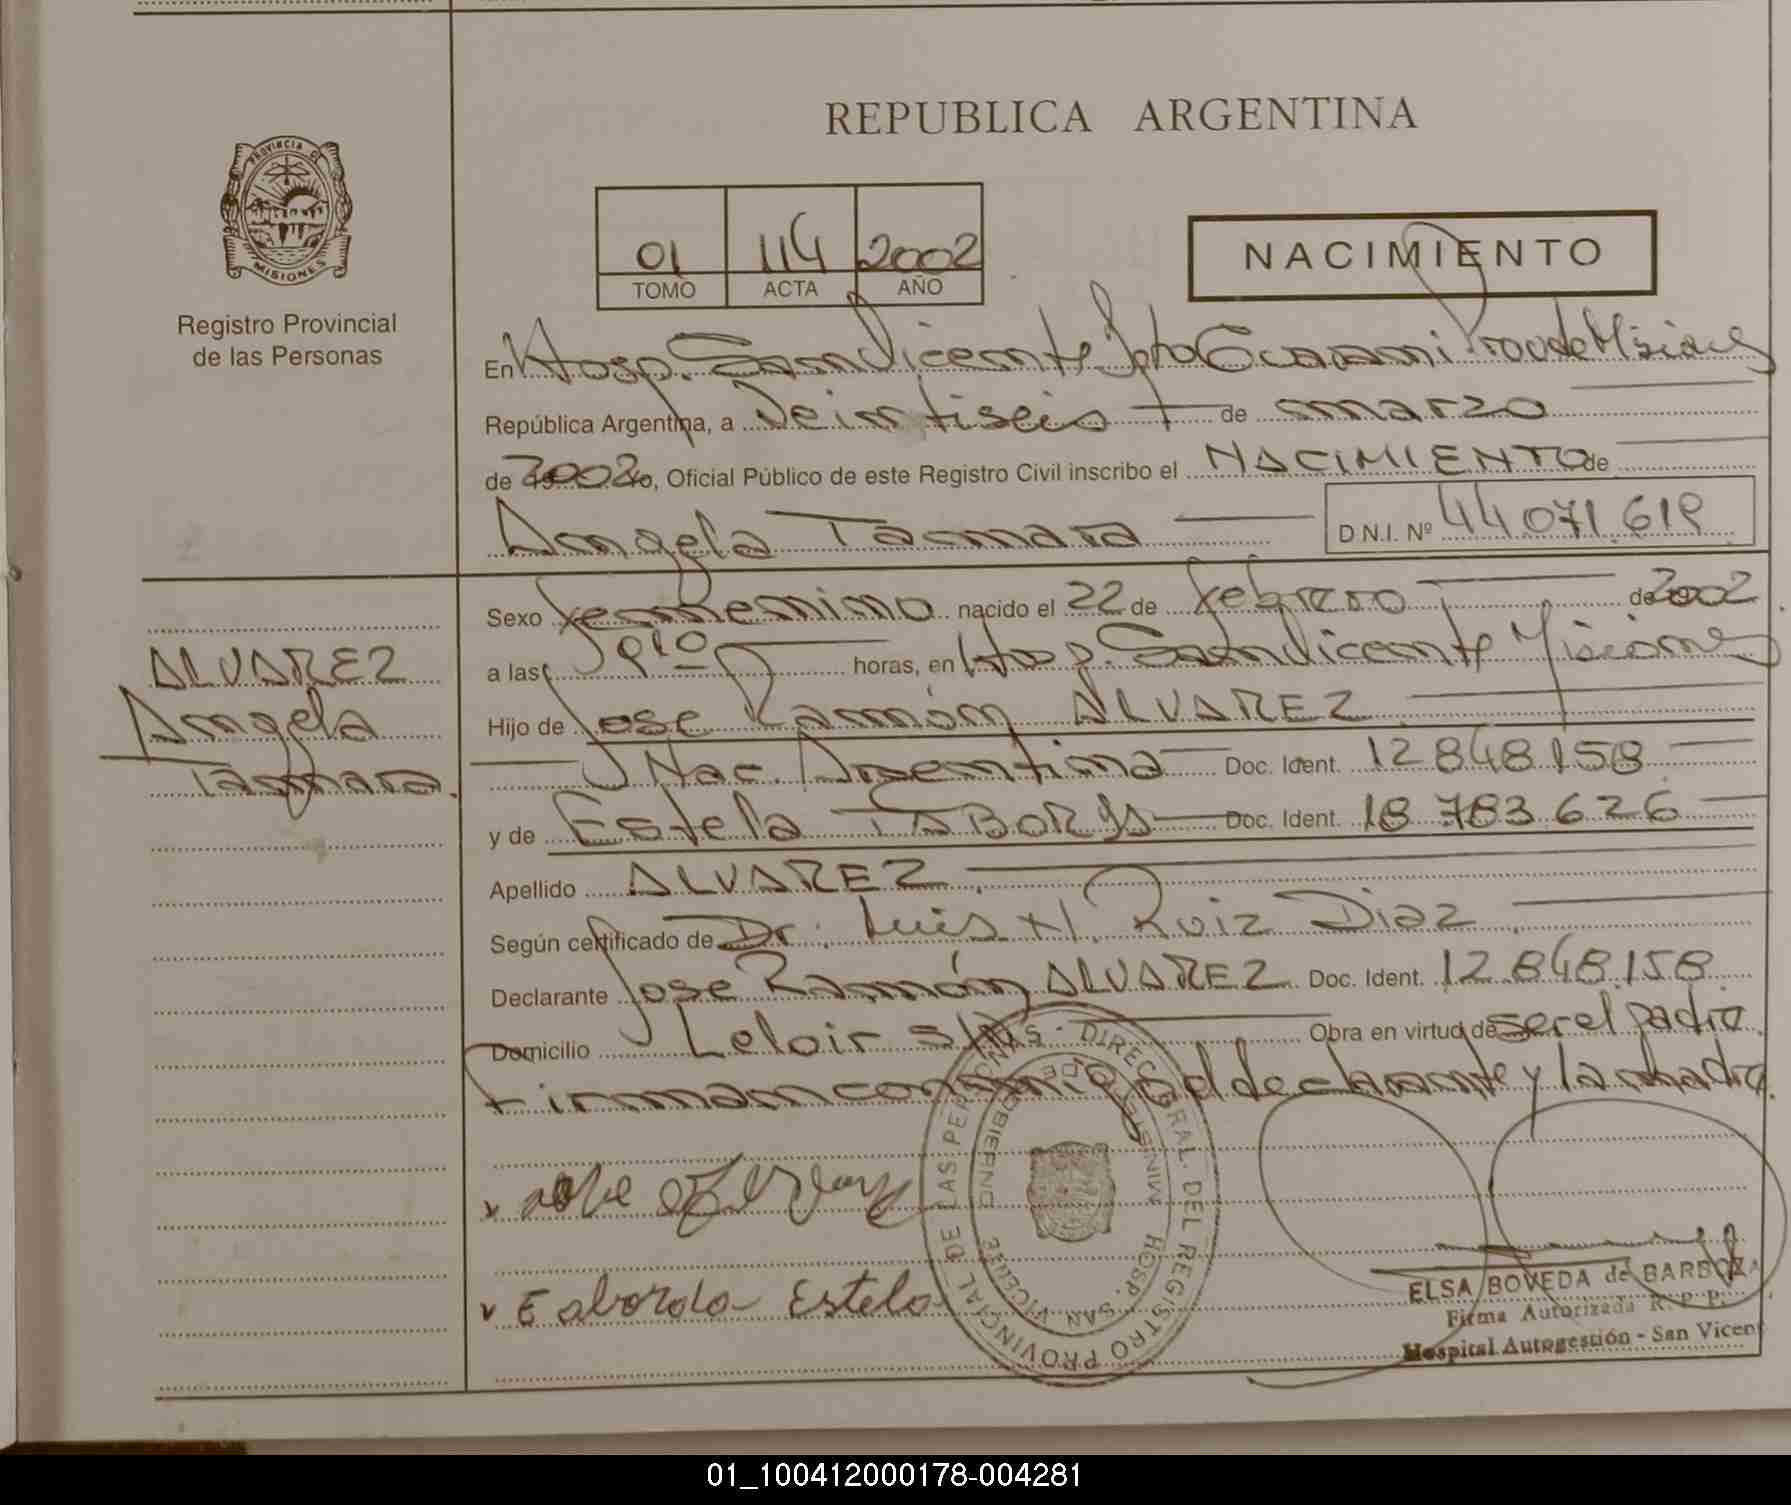 REPUBLICA ARGENTINA
PROVINCIA DE
MISIONES
Registro Provincial
de las Personas
01 114 2002
TOMO ACTA AÑO
NACIMIENTO
En Hosp. San Vicente Dpto Guarani Prov de Misiones
República Argentina, a Veintiseis de marzo
de 2002 yo, Oficial Público de este Registro Civil inscribo el NACIMIENTO de
Angela Tamara D.N.I. Nº 44 071 619
Sexo femenino nacido el 22 de febrero de 2002
a las horas, en Hosp. San Vicente Misiones
Hijo de Jose Ramón ALVAREZ
Nac. Argentina Doc. Ident. 12 848 158
y de Estela TABORDA Doc. Ident. 18 783 626
Apellido ALVAREZ
Según certificado de Dr. Luis H. Ruiz Diaz
Declarante Jose Ramón ALVAREZ Doc. Ident. 12 848 158
Domicilio Leloir s/n Obra en virtud de ser el padre
Firman conmigo el declarante y la madre
ALVAREZ
Angela
Tamara.
Taborda Estela
DIREC GRAL. DEL REGISTRO PROVINCIAL DE LAS PERSONAS
MINIST. DE GOBIERNO
HOSP. SAN VICENTE
ELSA BOVEDA de BARBOZA
Firma Autorizada R. P. P.
Hospital Autogestión - San Vicen
01_100412000178-004281